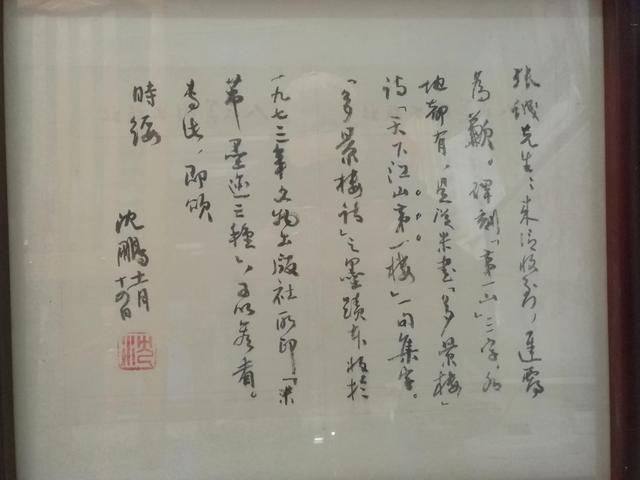 張先生：来信收到，遲覆
為歉。碑刻「第一山」三字，各
地都有，是從米書「多景樓」
詩「天下江山第一樓」一句集字。
「多景樓詩」之墨蹟本收於
一九七三年文物出版社所印「米
芾墨迹三種」，可以參看。
專此，即頌
時綏
沈鵬 十一月十四日